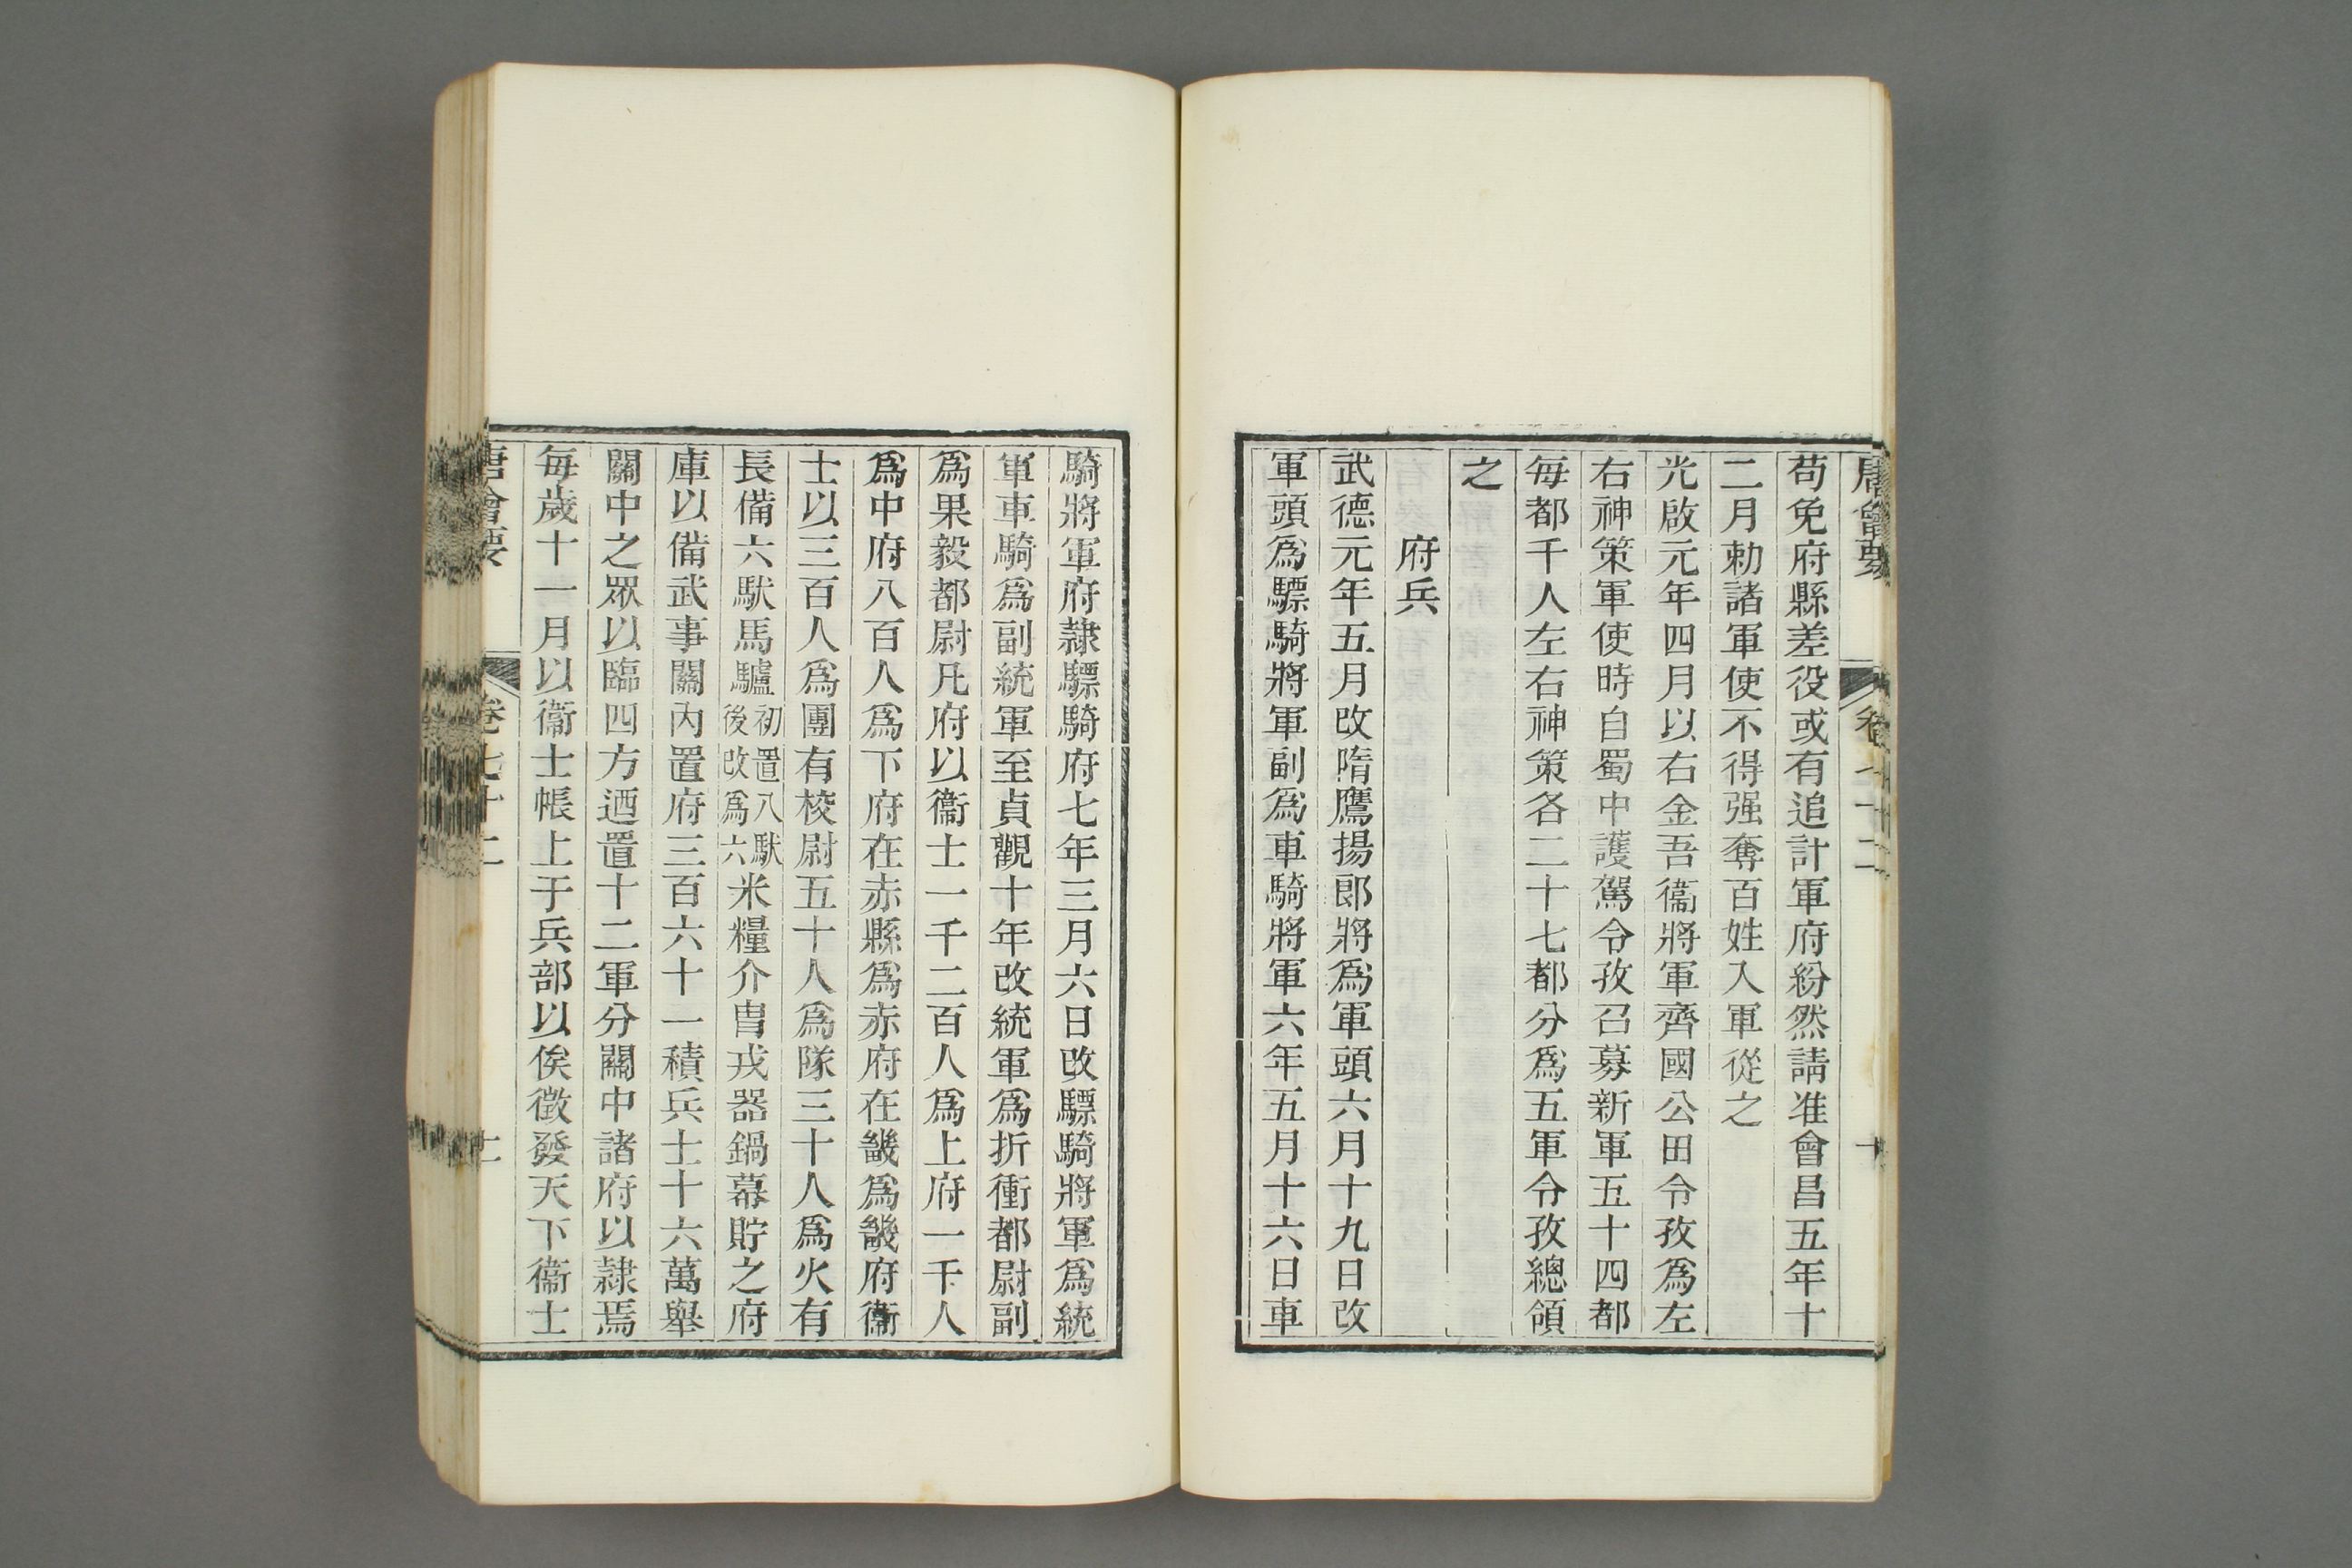 唐會要 卷七十二 十
苟免府縣差役或有追計軍府紛然請准會昌五年十
二月勅諸軍使不得强奪百姓入軍從之
光啟元年四月以右金吾衞將軍齊國公田令孜爲左
右神策軍使時自蜀中護駕令孜召募新軍五十四都
每都千人左右神策各二十七都分爲五軍令孜總領
之
府兵
武德元年五月改隋鷹揚郎將爲軍頭六月十九日改
軍頭爲驃騎將軍副爲車騎將軍六年五月十六日車
騎將軍府隷驃騎府七年三月六日改驃騎將軍爲統
軍車騎爲副統軍至貞觀十年改統軍爲折衝都尉副
爲果毅都尉凡府以衞士一千二百人爲上府一千人
爲中府八百人爲下府在赤縣爲赤府在畿爲畿府衞
士以三百人爲團有校尉五十人爲隊三十人爲火有
長備六馱馬驢初置八馱後改爲六米糧介胄戎器鍋幕貯之府
庫以備武事關內置府三百六十一積兵士十六萬舉
關中之眾以臨四方迺置十二軍分關中諸府以隷焉
每歲十一月以衞士帳上于兵部以俟徵發天下衞士
唐會要 卷七十二 十一